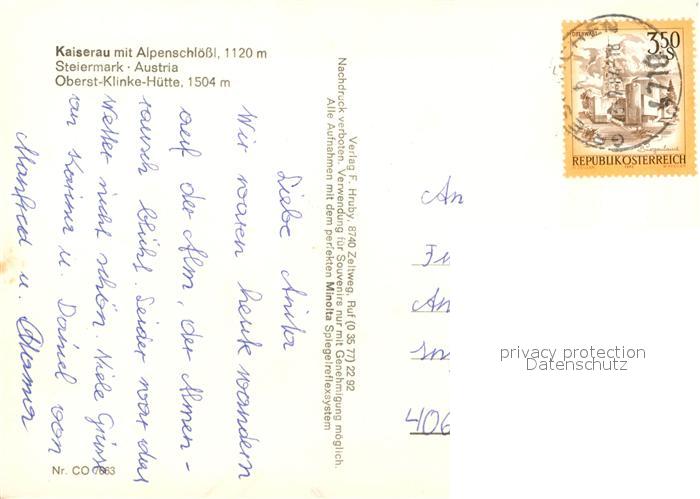 Kaiserau mit Alpenschlößl, 1120 m
Steiermark · Austria
Oberst-Klinke-Hütte, 1504 m
Liebe Anita
Wir waren heute wandern
auf der Alm, der Almen-
rausch blüht. Leider war das
Wetter nicht schön. Viele Grüsse
an Karina u. Daniel von
Manfred u.
Nr. CO 7663
Verlag F. Hruby, 8740 Zeltweg, Ruf (0 35 77) 22 92
Nachdruck verboten. Verwendung für Souvenirs nur mit Genehmigung möglich.
Alle Aufnahmen mit dem perfekten Minolta Spiegelreflexsystem
3.50
S
Burgenland
REPUBLIK ÖSTERREICH
An
An
406
privacy protection
Datenschutz